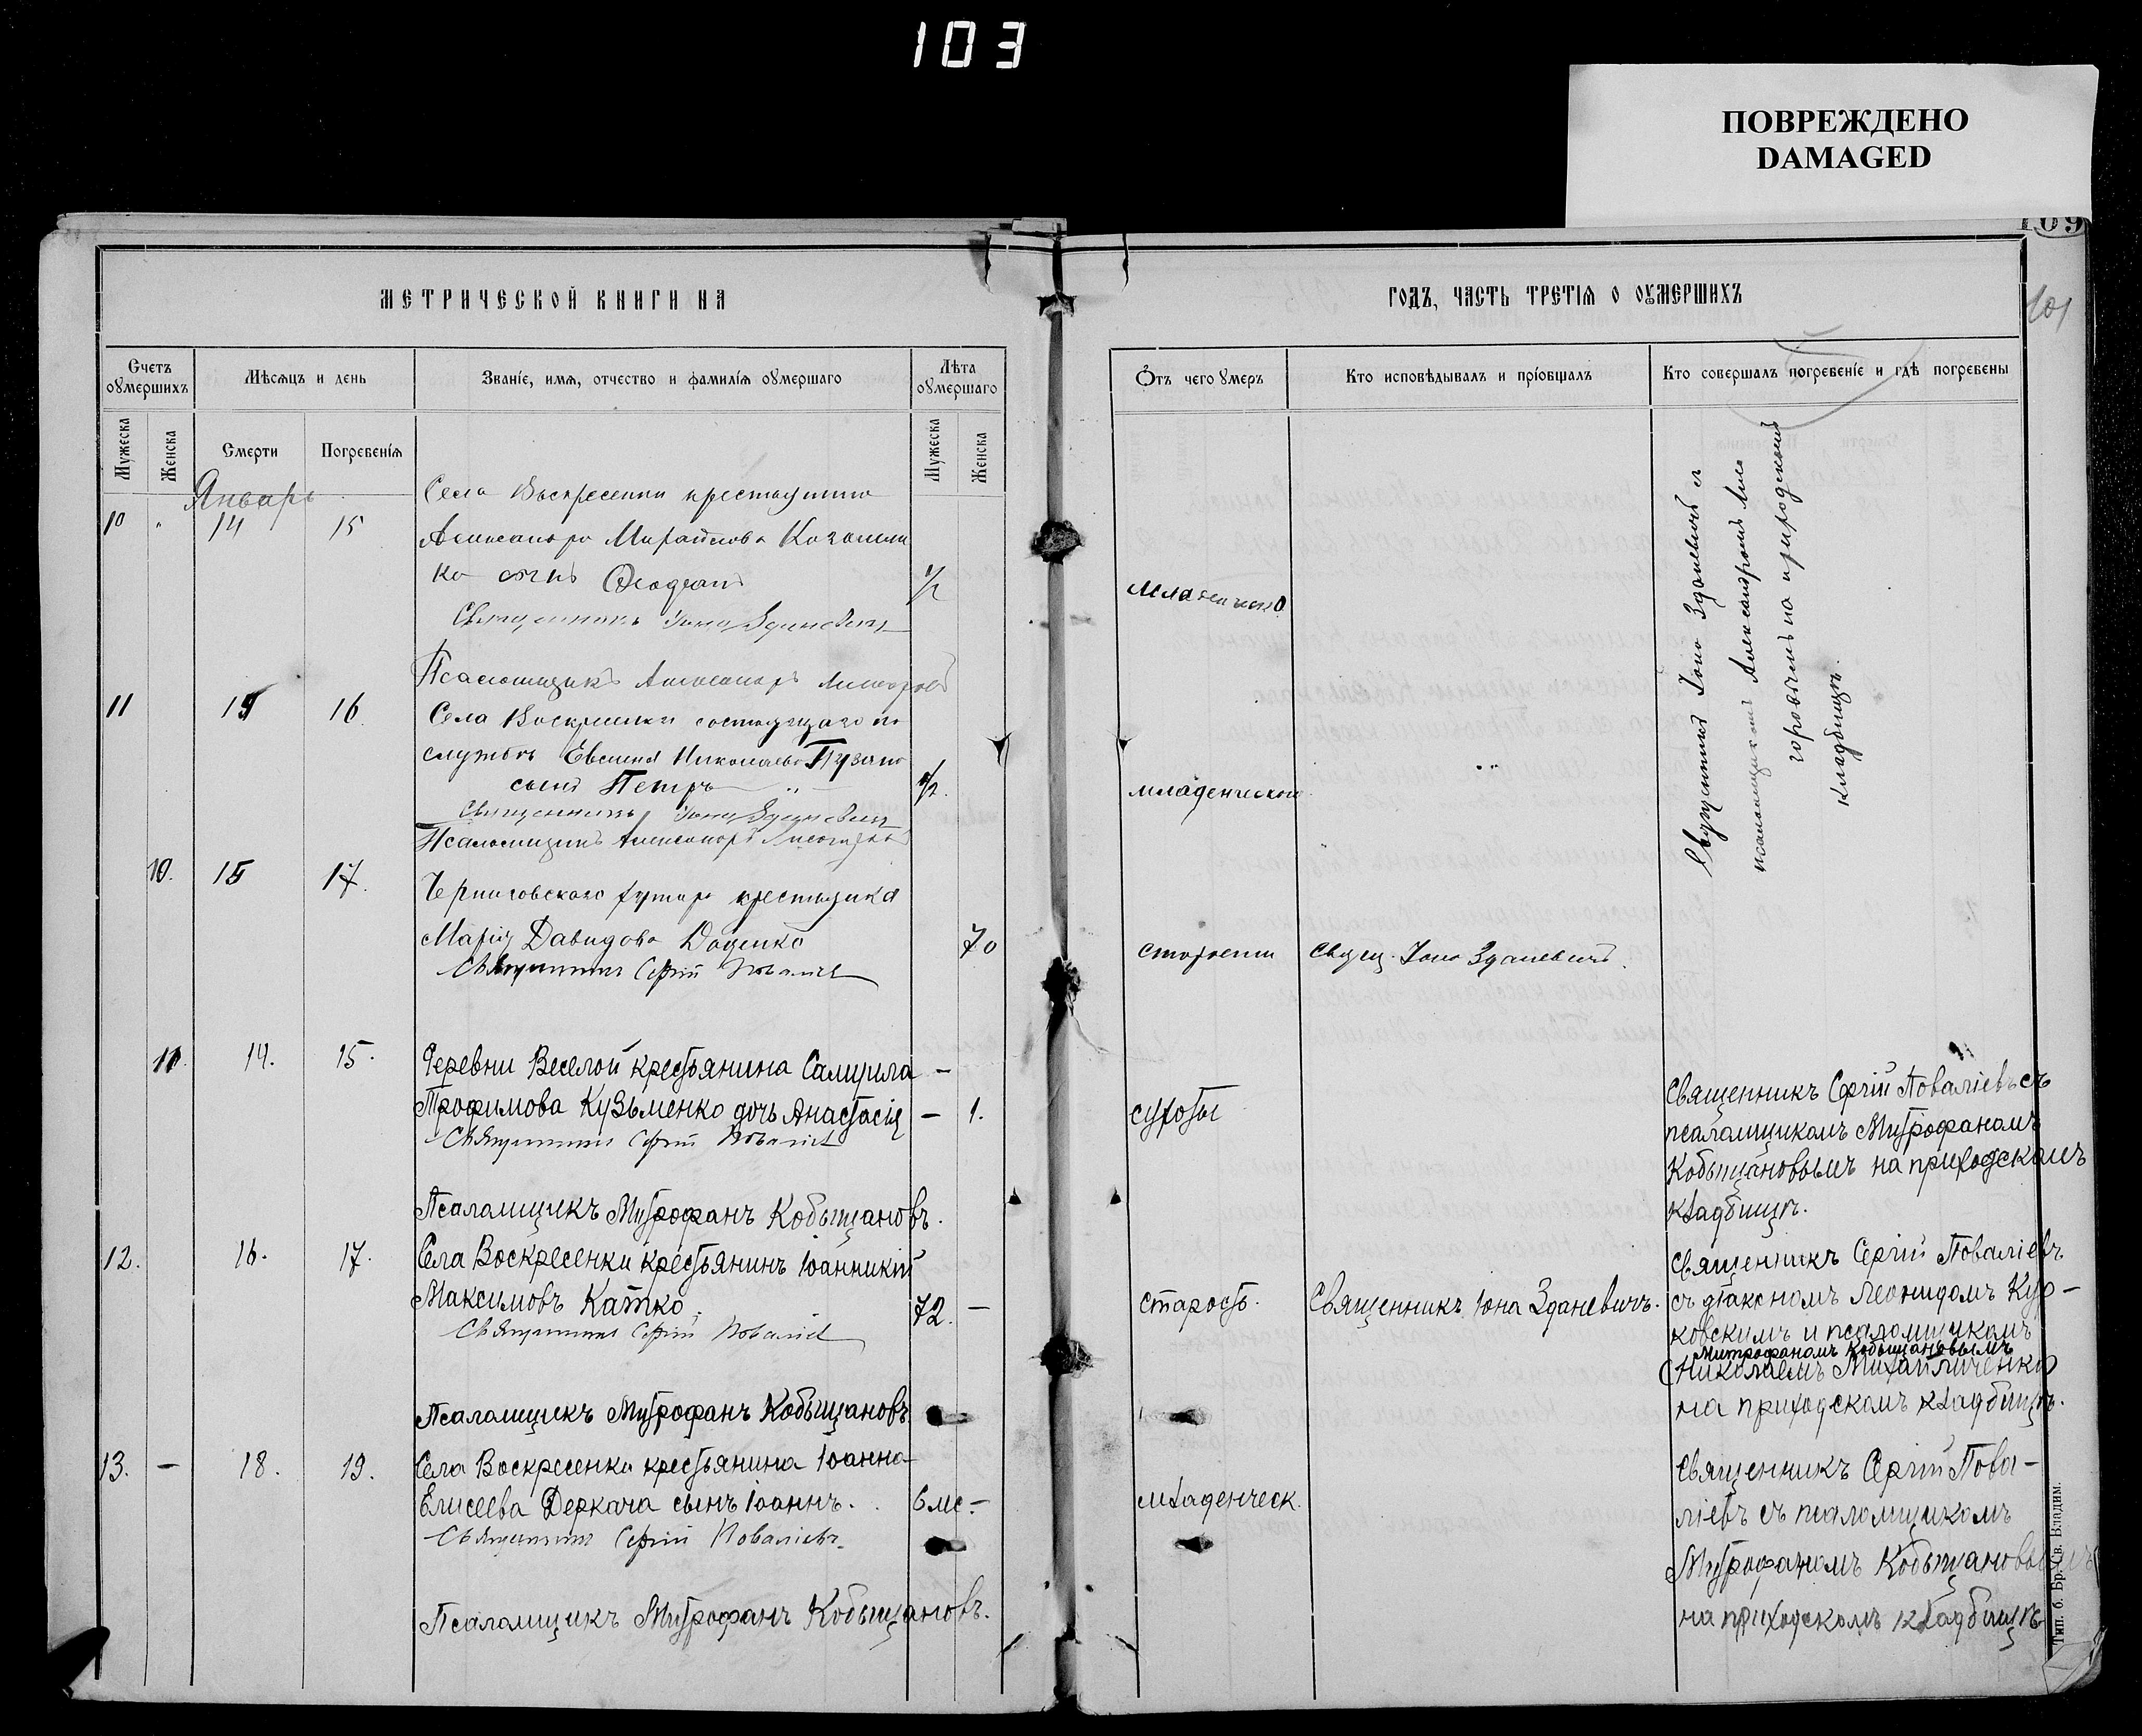 103
ПОВРЕЖДЕНО
DAMAGED
109
101
МЕТРИЧЕСКОЙ КНИГИ НА
ГОДЪ, ЧАСТЬ ТРЕТІЯ О ОУМЕРШИХЪ
Счетъ оумершихъ
Мѣсяцъ и день
Званіе, имя, отчество и фамилія оумершаго
Лѣта оумершаго
Отъ чего умеръ
Кто исповѣдывалъ и пріобщалъ
Кто совершалъ погребеніе и гдѣ погребены
Мужеска
Женска
Смерти
Погребенія
Мужеска
Женска
Январь
Села Воскресенки крестьянина
10 14 15
Александра Михайлова
ка сынъ Ѳеодоръ 1/2
Священникъ Іона Зданевичъ
Псаломщикъ Александръ
11 15 16
Села Воскресенки состоящаго на
службѣ Евсилія Николаева
сынъ Петръ 1/2. младенческой
Священникъ Іона Зданевичъ
Псаломщикъ Александръ
Священникъ Іона Зданевичъ съ
псаломщикомъ Александромъ
на приходскомъ
кладбищѣ.
10. 15 17.
Черниговскаго хутора крестьянка
Марія Давидова Даценко 70 старости Свящ. Іона Зданевичъ.
Священникъ Сергій Поваліевъ
11. 14. 15. Деревни Веселой крестьянина Самуила –
Трофимова Кузьменко дочь Анастасія – 1. сухоты
Священникъ Сергій Поваліевъ
Псаломщикъ Митрофанъ Кобыщановъ.
Священникъ Сергій Поваліевъ съ
псаломщикомъ Митрофаномъ
Кобыщановымъ на приходскомъ
кладбищѣ.
12. 16. 17. Села Воскресенки крестьянинъ Іоанникій
Максимовъ Катко. 72. – старость. Священникъ Іона Зданевичъ.
Священникъ Сергій Поваліевъ
Псаломщикъ Митрофанъ Кобыщановъ
Священникъ Сергій Поваліевъ
съ діакономъ Леонидомъ Кур-
ковскимъ и псаломщикомъ
Митрофаномъ Кобыщановымъ
(Николаемъ Михайличенко)
на приходскомъ кладбищѣ.
13. – 18. 19. Села Воскресенки крестьянина Іоанна
Елисеева Деркача сынъ Іоаннъ. 6 мс. – младенческ.
Священникъ Сергій Поваліевъ
Псаломщикъ Митрофанъ Кобыщановъ.
Священникъ Сергій Пова-
ліевъ съ псаломщикомъ
Митрофаномъ Кобыщановымъ
на приходскомъ кладбищѣ
Тип. б. Бр. Св. Владим.